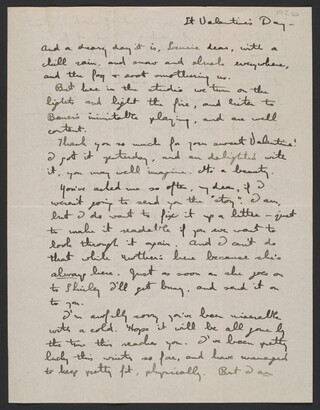 St Valentine's Day -
And a dreary day it is, dear, with a
chill rain, and snow and slush everywhere,
and the fog & soot smothering us.
But here in the studio we turn on the
lights and light the fire, and listen to
Bauer's inimitable playing, and are well
content.
Thank you so much for your sweet Valentine!
I got it yesterday, and am delighted with
it, you may well imagine. It's a beauty.
You've asked me so often, my dear, if I
weren't going to send you the "story". I am,
but I do want to fix it up a little - just
to make it readable if you ever want to
look through it again. And I can't do
that while Mother's here because she's
always here. Just as soon as she goes on
to Shirley I'll get busy, and send it on
to you.
I'm awfully sorry you've been miserable
with a cold. Hope it will be all gone by
the time this reaches you. I've been pretty
lucky this winter so far, and have managed
to keep pretty fit, physically. But I am